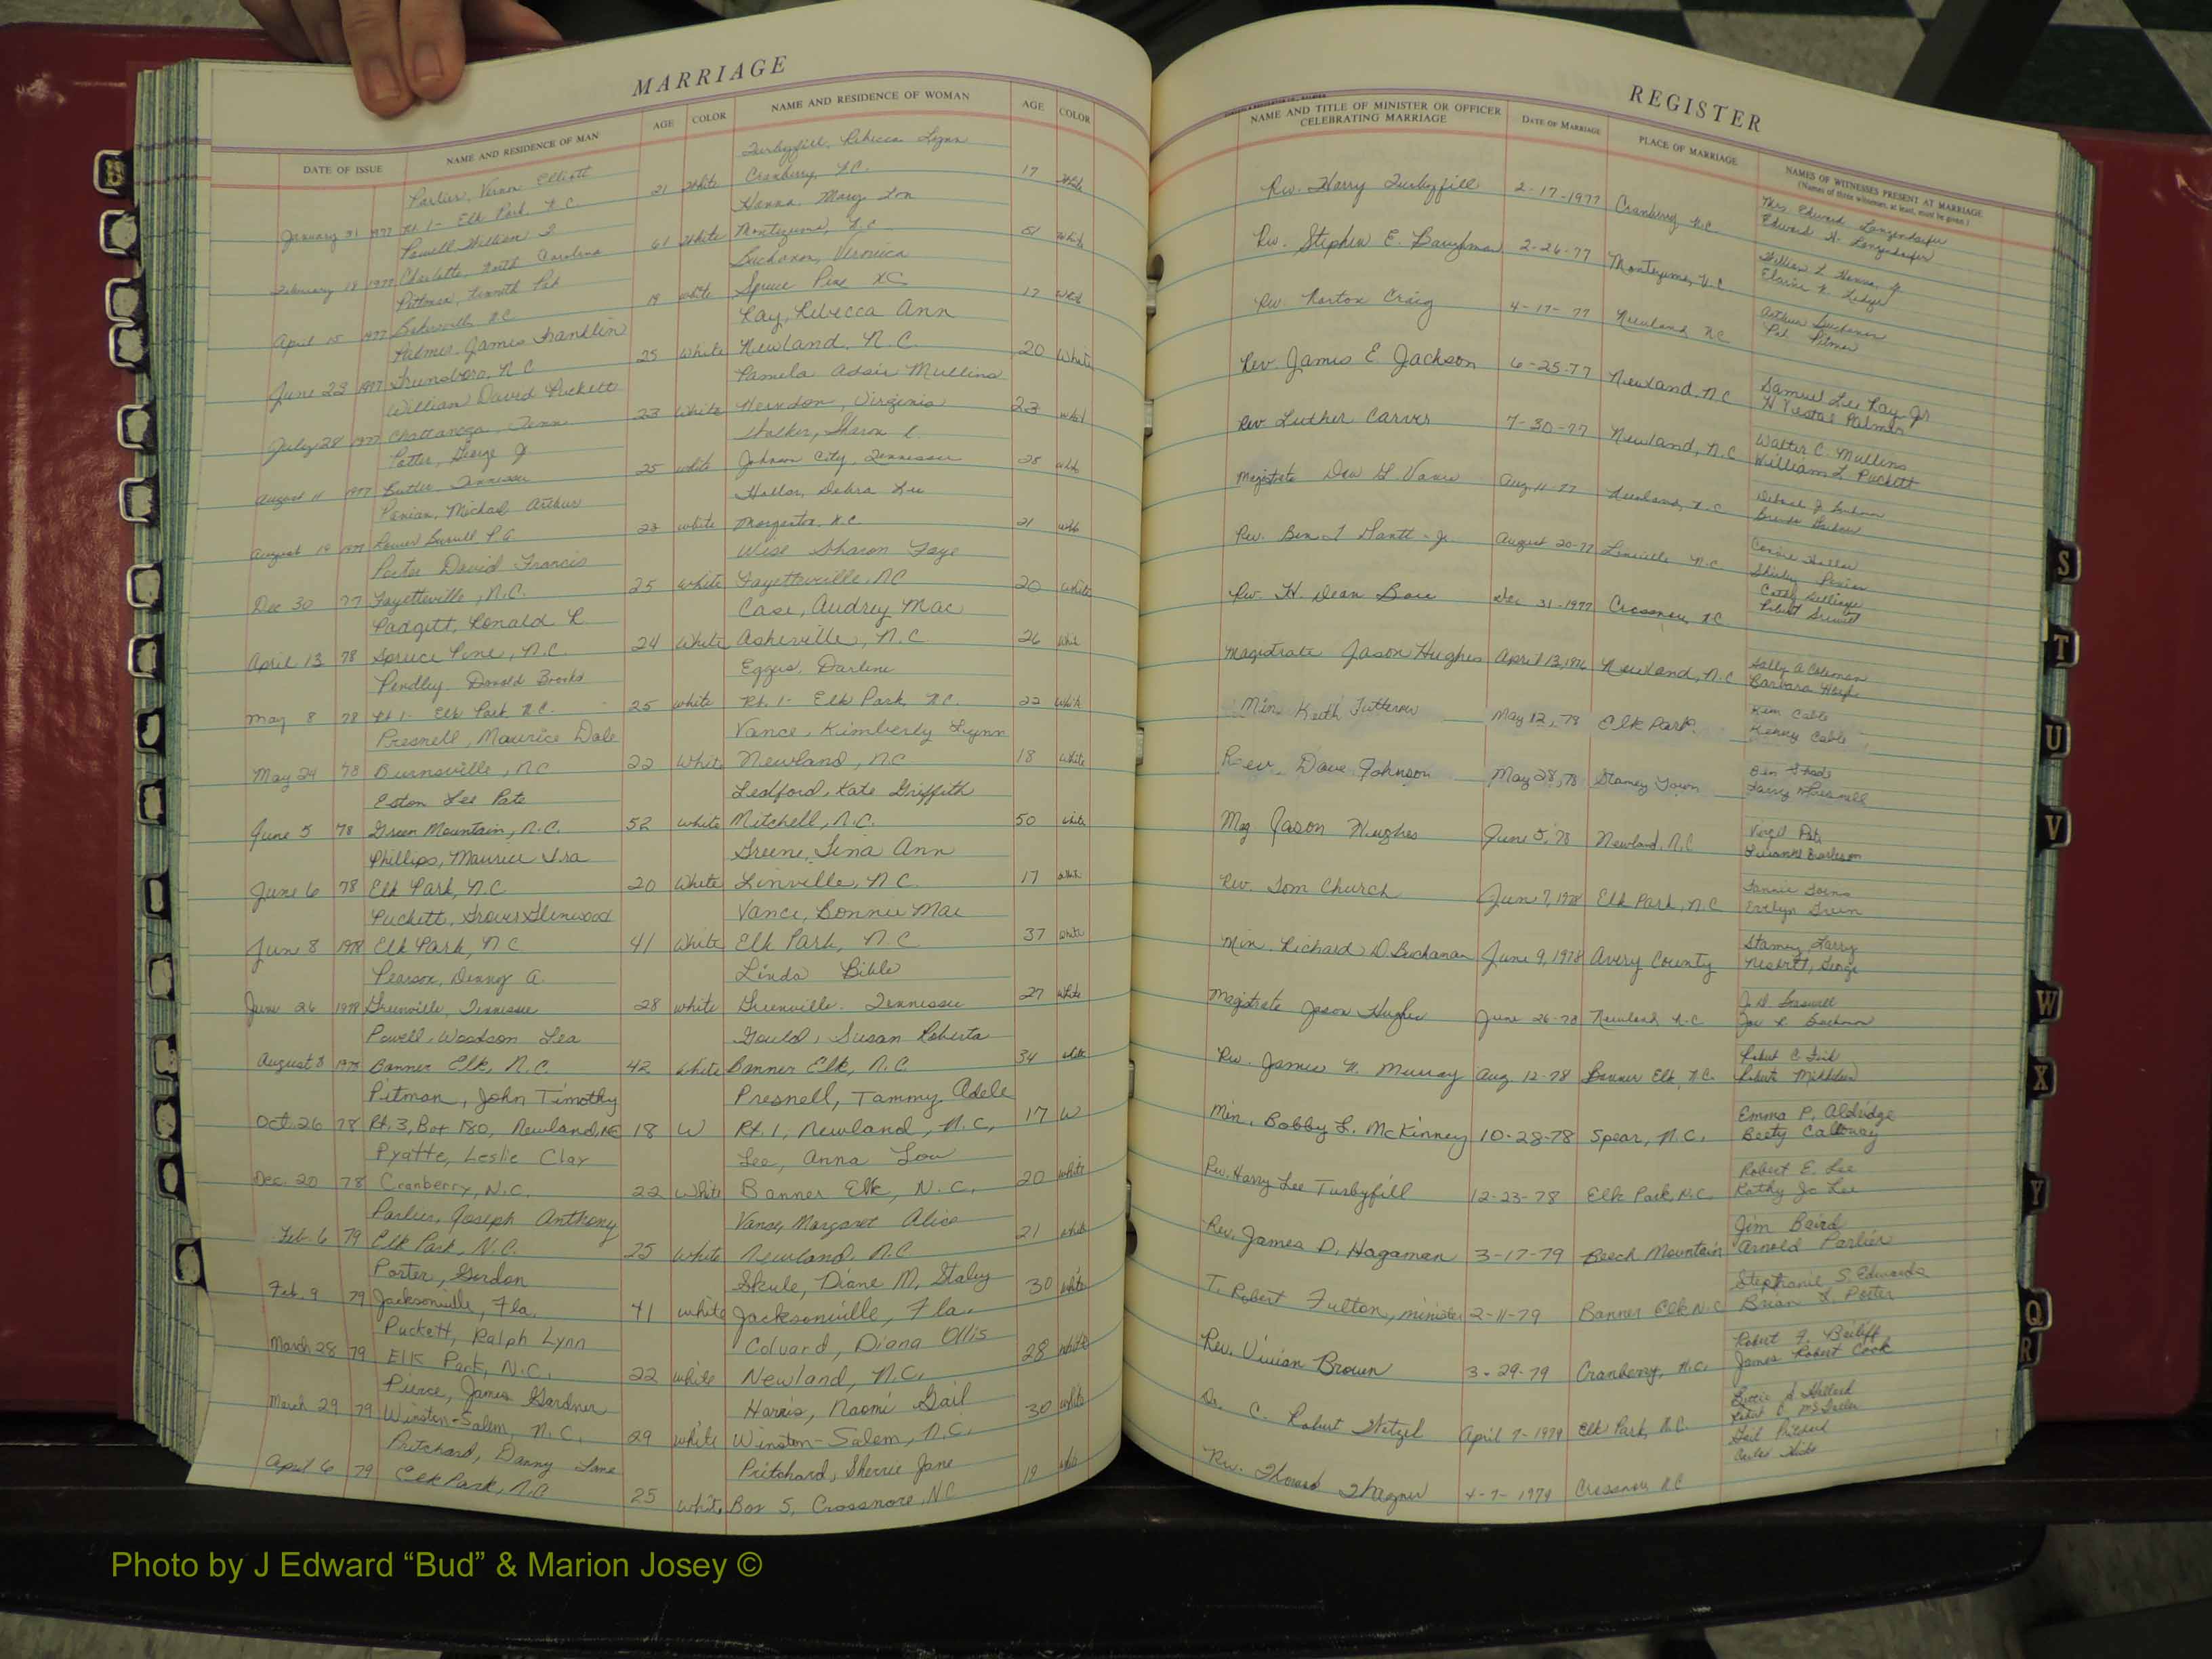 MARRIAGE
DATE OF ISSUE NAME AND RESIDENCE OF MAN AGE COLOR NAME AND RESIDENCE OF WOMAN AGE COLOR
Parlier, Vernon Elliott Turbyfill, Rebecca Lynn
January 31 1977 Rt 1- Elk Park, N.C. 21 White Cranberry, N.C. 17 White
Powell William Hanna, Mary Lou
February 18 1977 Charlotte, North Carolina 61 White Montezuma, N.C 51 White
Pittman, Buchanan, Veronica
April 15 1977 Bakersville, N.C. 19 White Spruce Pine N.C. 17 White
Palmer, James Franklin Ray, Rebecca Ann
June 23 1977 Greensboro, N.C 25 White Newland, N.C. 20 White
William David Puckett Pamela Adair Mullins
July 28 1977 Chattanooga, Tenn. 23 White Herndon, Virginia 23 White
Potter, George J Stalker, Sharon L.
August 11 1977 Butler, Tennessee 25 white Johnson City, Tennessee 25 white
Penian, Michael Arthur Hollar, Debra Lee
August 19 1977 Lower Burrell, P.A. 23 white Morganton, N.C. 21 white
Porter David Francis Wise Sharon Faye
Dec 30 77 Fayetteville, N.C. 25 white Fayetteville, NC 20 White
Padgitt, Ronald R. Case, Audrey Mae
April 13 78 Spruce Pine, N.C. 24 White Asheville, N.C. 26 White
Pendley, Donald Brooks Eggers, Darlene
May 8 78 Rt 1- Elk Park, N.C. 25 white Rt. 1- Elk Park, N.C. 22 White
Presnell, Maurice Dale Vance, Kimberly Lynn
May 24 78 Burnsville, NC 22 White Newland, NC 18 White
Eston Lee Pate Ledford, Kate Griffith
June 5 78 Green Mountain, N.C. 52 White Mitchell, N.C. 50 White
Phillips, Maurice Ira Greene, Tina Ann
June 6 78 Elk Park, N.C. 20 White Linville, N.C. 17 White
Puckett, Grover Glenwood Vance, Bonnie Mae
June 8 1978 Elk Park, N.C 41 White Elk Park, N.C 37 White
Pearson, Danny A. Linda Bible
June 26 1978 Greenville, Tennessee 28 white Greenville, Tennessee 27 White
Powell, Woodson Lea Gould, Susan Roberta
August 8 1978 Banner Elk, N.C. 42 White Banner Elk, N.C. 34 White
Pitman, John Timothy Presnell, Tammy Adele
Oct. 26 78 Rt. 3, Box 180, Newland, NC 18 W Rt. 1, Newland, N.C. 17 W
Pyatte, Leslie Clay Lee, Anna Lou
Dec. 20 78 Cranberry, N.C. 22 White Banner Elk, N.C. 20 White
Parlier, Joseph Anthony Vance, Margaret Alice
Feb. 6 79 Elk Park, N.C. 25 White Newland, N.C 21 White
Porter, Gordon Skule, Diane M. Staley
Feb. 9 79 Jacksonville, Fla. 41 white Jacksonville, Fla. 30 White
Puckett, Ralph Lynn Colvard, Diana Ollis
March 28 79 Elk Park, N.C. 22 white Newland, N.C. 28 White
Pierce, James Gardner Harris, Naomi Gail
March 29 79 Winston-Salem, N.C. 29 white Winston-Salem, N.C. 30 White
Pritchard, Danny Lane Pritchard, Sherrie Jane
April 6 79 Elk Park, N.C 25 White Box 5, Crossnore, NC 19 White
REGISTER
NAME AND TITLE OF MINISTER OR OFFICER CELEBRATING MARRIAGE DATE OF MARRIAGE PLACE OF MARRIAGE NAMES OF WITNESSES PRESENT AT MARRIAGE
(Names of three witnesses, at least, must be given.)
Rev. Harry Turbyfill 2-17-1977 Cranberry N.C Mrs. Edward Langendorfer
Edward H. Langendorfer
Rev. Stephen E. Baughman 2-26-77 Montezuma, N.C William L. Hanna, Jr
Elaine
Rev. Norton Craig 4-17-77 Newland NC Arthur Buchanan
Pitman
Rev. James E. Jackson 6-25-77 Newland, NC Samuel Lee Ray Jr
H Vestal Palmer
Rev. Luther Carver 7-30-77 Newland, N.C Walter C. Mullins
William L Puckett
Magistrate Vance Aug. 11-77 Newland, N.C
Brenda
Rev. Ben J. Jr. August 20-77 Linville N.C Hollar
Shirley Penian
Rev. H. Dean Dec 31-1977 Crossnore, NC Cathy
Robert
Magistrate Jason Hughes April 13, 1978 Newland, N.C Sally A Coleman
Barbara
Min. Keith Tutterow May 12, 78 Elk Park Kim Cable
Kenny Cable
Rev. Dave Johnson May 28, 78 Stamey Town Ben
Larry Presnell
Mag Jason Hughes June 5, 78 Newland, N.C Virgil Pate
Burleson
Rev. Tom Church June 7, 1978 Elk Park, N.C Fannie
Evelyn Green
Min. Richard D. Buchanan June 9, 1978 Avery County Stamey, Larry
Nesbitt, George
Magistrate Jason Hughes June 26-78 Newland N.C
Rev. James H. Murray Aug. 12-78 Banner Elk, N.C. Robert C.
Min. Bobby L. McKinney 10-28-78 Spear, N.C. Emma P. Aldridge
Betty Calloway
Rev. Harry Lee Turbyfill 12-23-78 Elk Park, N.C. Robert E. Lee
Kathy Jo Lee
Rev. James D. Hagaman 3-17-79 Beech Mountain Jim Baird
Arnold Parlier
T. Robert Fulton, minister 2-11-79 Banner Elk, N.C. Stephanie S. Edwards
Brian L. Porter
Rev. Vivian Brown 3-29-79 Cranberry, N.C. Robert F. Bailiff
James Robert Cook
Dr. C. Robert Wetzel April 7-1979 Elk Park, N.C.
Rev. 4-7-1979 Crossnore, N.C Gail Pritchard
S
T
U
V
W
X
Y
Q
R
Photo by J Edward “Bud” & Marion Josey ©